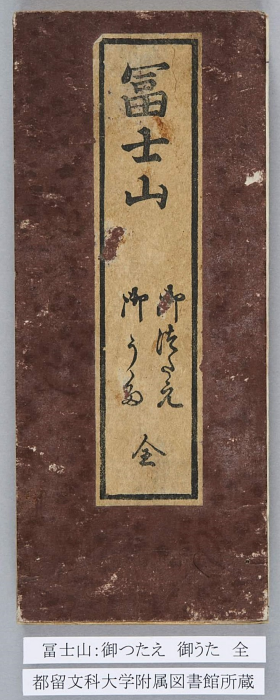 冨士山
御つたえ
御うた
全
冨士山:御つたえ 御うた 全
都留文科大学附属図書館所蔵